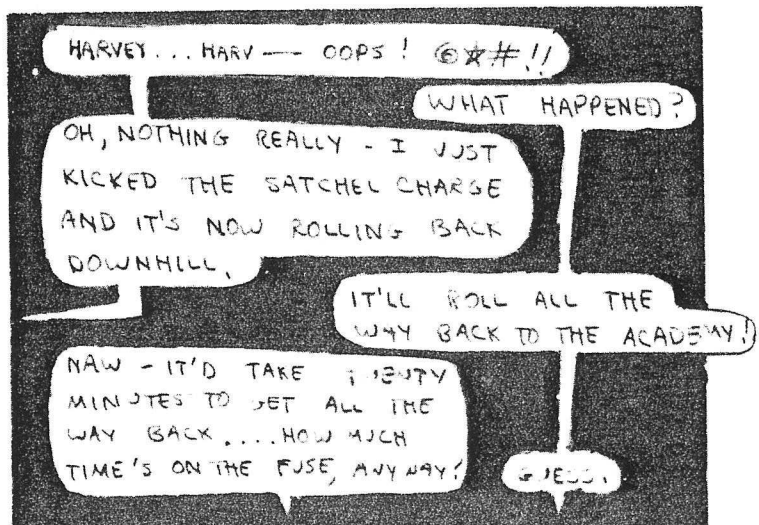 HARVEY... HARV — OOPS! @*#!!
WHAT HAPPENED?
OH, NOTHING REALLY - I JUST
KICKED THE SATCHEL CHARGE
AND IT'S NOW ROLLING BACK
DOWNHILL.
IT'LL ROLL ALL THE
WAY BACK TO THE ACADEMY!
NAW - IT'D TAKE TWENTY
MINUTES TO GET ALL THE
WAY BACK....HOW MUCH
TIME'S ON THE FUSE, ANYWAY?
GUESS.